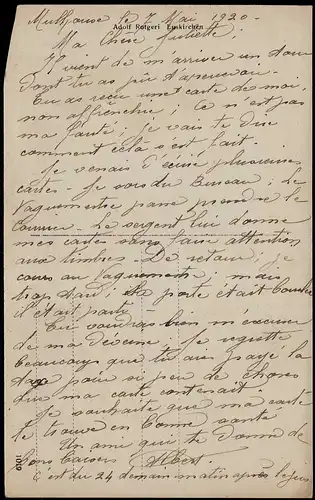 Mulhouse le 7 Mai 1920.
Adolf Rutgeri Euskirchen
Ma Chère Juliette,
Il vient de m'arriver un tour
dont tu as pu t'apercevoir.
Tu as reçu une carte de moi,
non affranchie; Ce n'est pas
ma faute; je vais te dire
comment celà s'est fait.
Je venais d'écrire plusieurs
cartes - Je sors du Bureau; le
Vaguemestre passe prendre le
Courrier - Le sergent lui donne
mes cartes sans faire attention
aux timbres - De retour, je
cours au Vaguemestre; mais
trop tard; la poste était
il était parti
Tu voudras bien m'excuser
de ma déveine, Je regrette
beaucoup que tu aies payé la
taxe pour si peu de choses
que ma carte contenait.
Je souhaite que ma carte
te trouve en bonne santé
Un ami qui te donne de
bons baisers Albert
C'est du 24 demain matin après le jus
1010